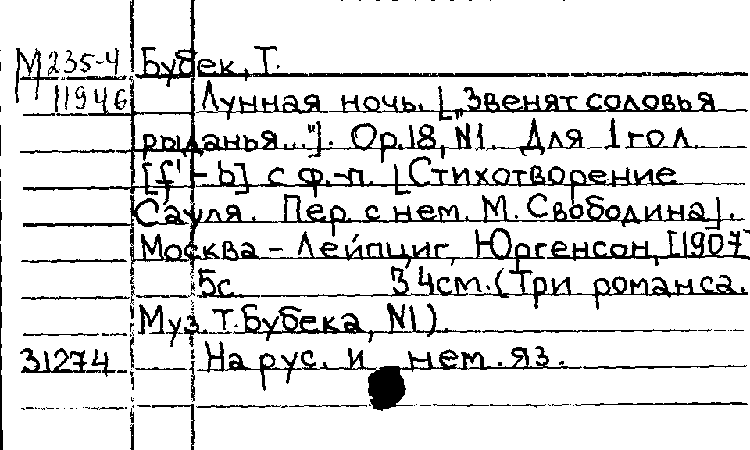 М 235-4 Бубек, Т.
11946 Лунная ночь. [„Звенят соловья
рыданья..."]. Ор.18, N1. Для 1 гол.
[f'-b] с ф.-п. [Стихотворение
Сауля. Пер. с нем. М. Свободина].
Москва - Лейпциг, Юргенсон, [1907]
5с. 34см. (Три романса.
Муз. Т. Бубека, N1).
31274 На рус. и нем. яз.